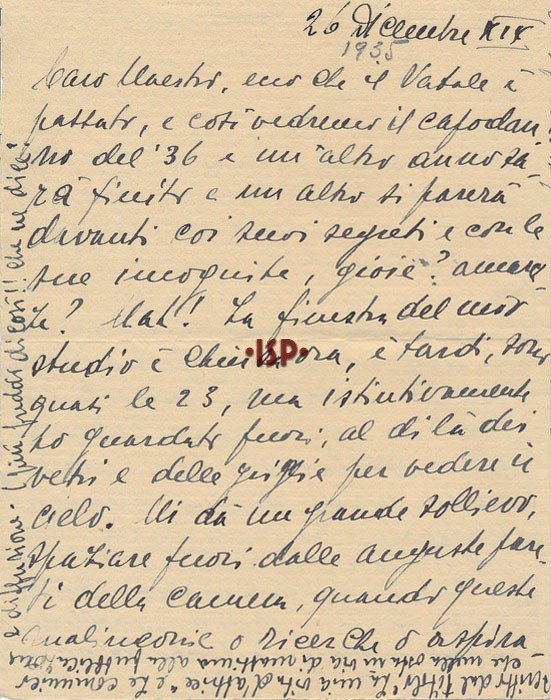 26 Dicembre XIX
1935
Caro Maestro, ecco che il Natale è
passato, e così vedremo il capodan,
no del '36 e un altro anno sa,
rà finito e un altro si parerà
davanti coi suoi segreti e con le
sue incognite, gioie? amarez,
ze? Mah! La finestra del mio
studio è chiusa ora, è tardi, sono
quasi le 23, ma istintivamente
ho guardato fuori, al di là dei
vetri e delle griglie per vedere il
cielo. Mi dà un grande sollievo,
spaziare fuori dalle anguste pare,
ti della camera, quando queste
malinconie o ricerche o aspira,
•ISP•
e diffusione. più di così!! che ne dice?
scritto dal titolo: La mia vita d'attrice e
che nella di mattina alla pubblicazione